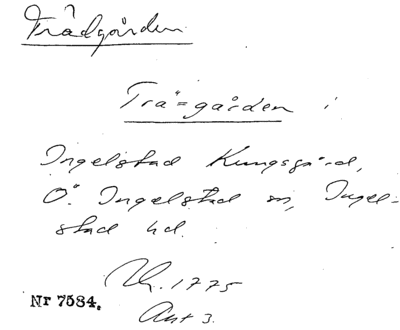 Trädgården
Trä=gården i
Ingelstad Kungsgård,
Ö. Ingelstad sn, Ingel-
stad hd.
1775
Nr 7584.
Akt 3.